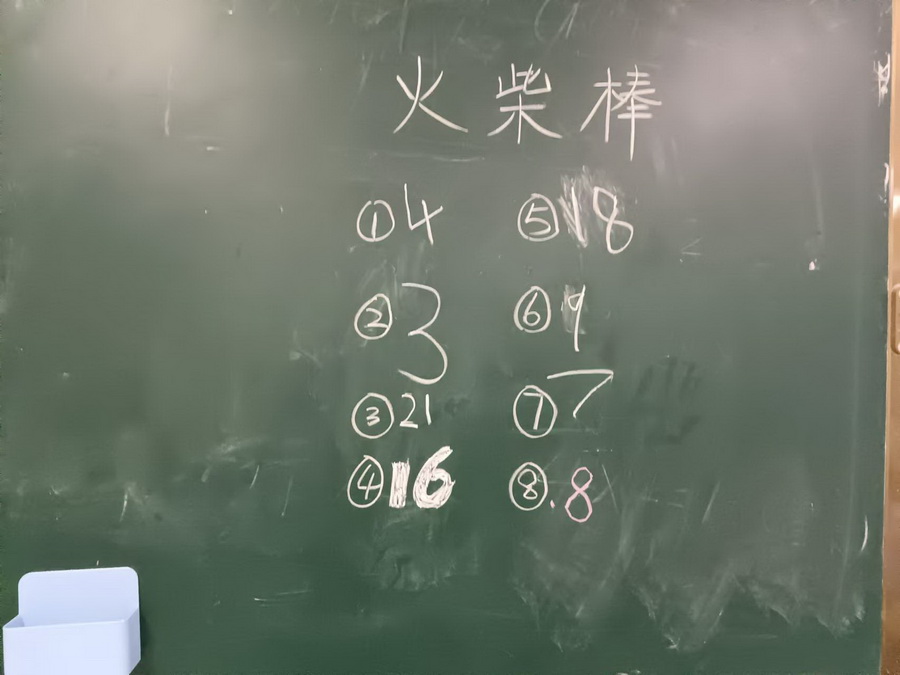 火柴棒
①4 ⑤18
②3 ⑥9
③21 ⑦7
④16 ⑧.8